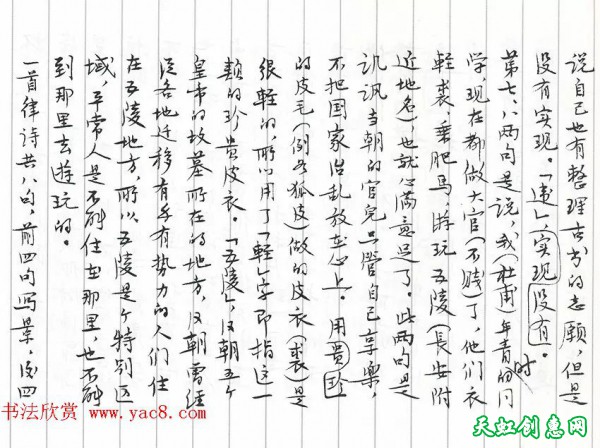 说自己也有整理古书的志愿，但是
没有实现。「违」（实现没有）。
第七、八两句是说，我（杜甫）年青时的同
学，现在都做大官（不贱）了，他们衣
轻裘，乘肥马，游玩五陵（长安附
近地名），也就心满意足了。此两句是
讥讽当朝的官儿只管自己享乐，
不把国家治乱放在心上。用贵重
的皮毛（例如狐皮）做的皮衣（裘）是
很轻的，所以用了「轻」字即指这一
类的珍贵皮衣。「五陵」，汉朝五个
皇帝的坟墓所在的地方，汉朝曾经
从各地迁移有手有势力的人们住
在五陵地方，所以五陵是个特别区
域，平常人是不能住在那里，也不能
到那里去游玩的。
一首律诗共八句，前四句写景，后四
书法欣赏 www.yac8.com
天虹创惠网